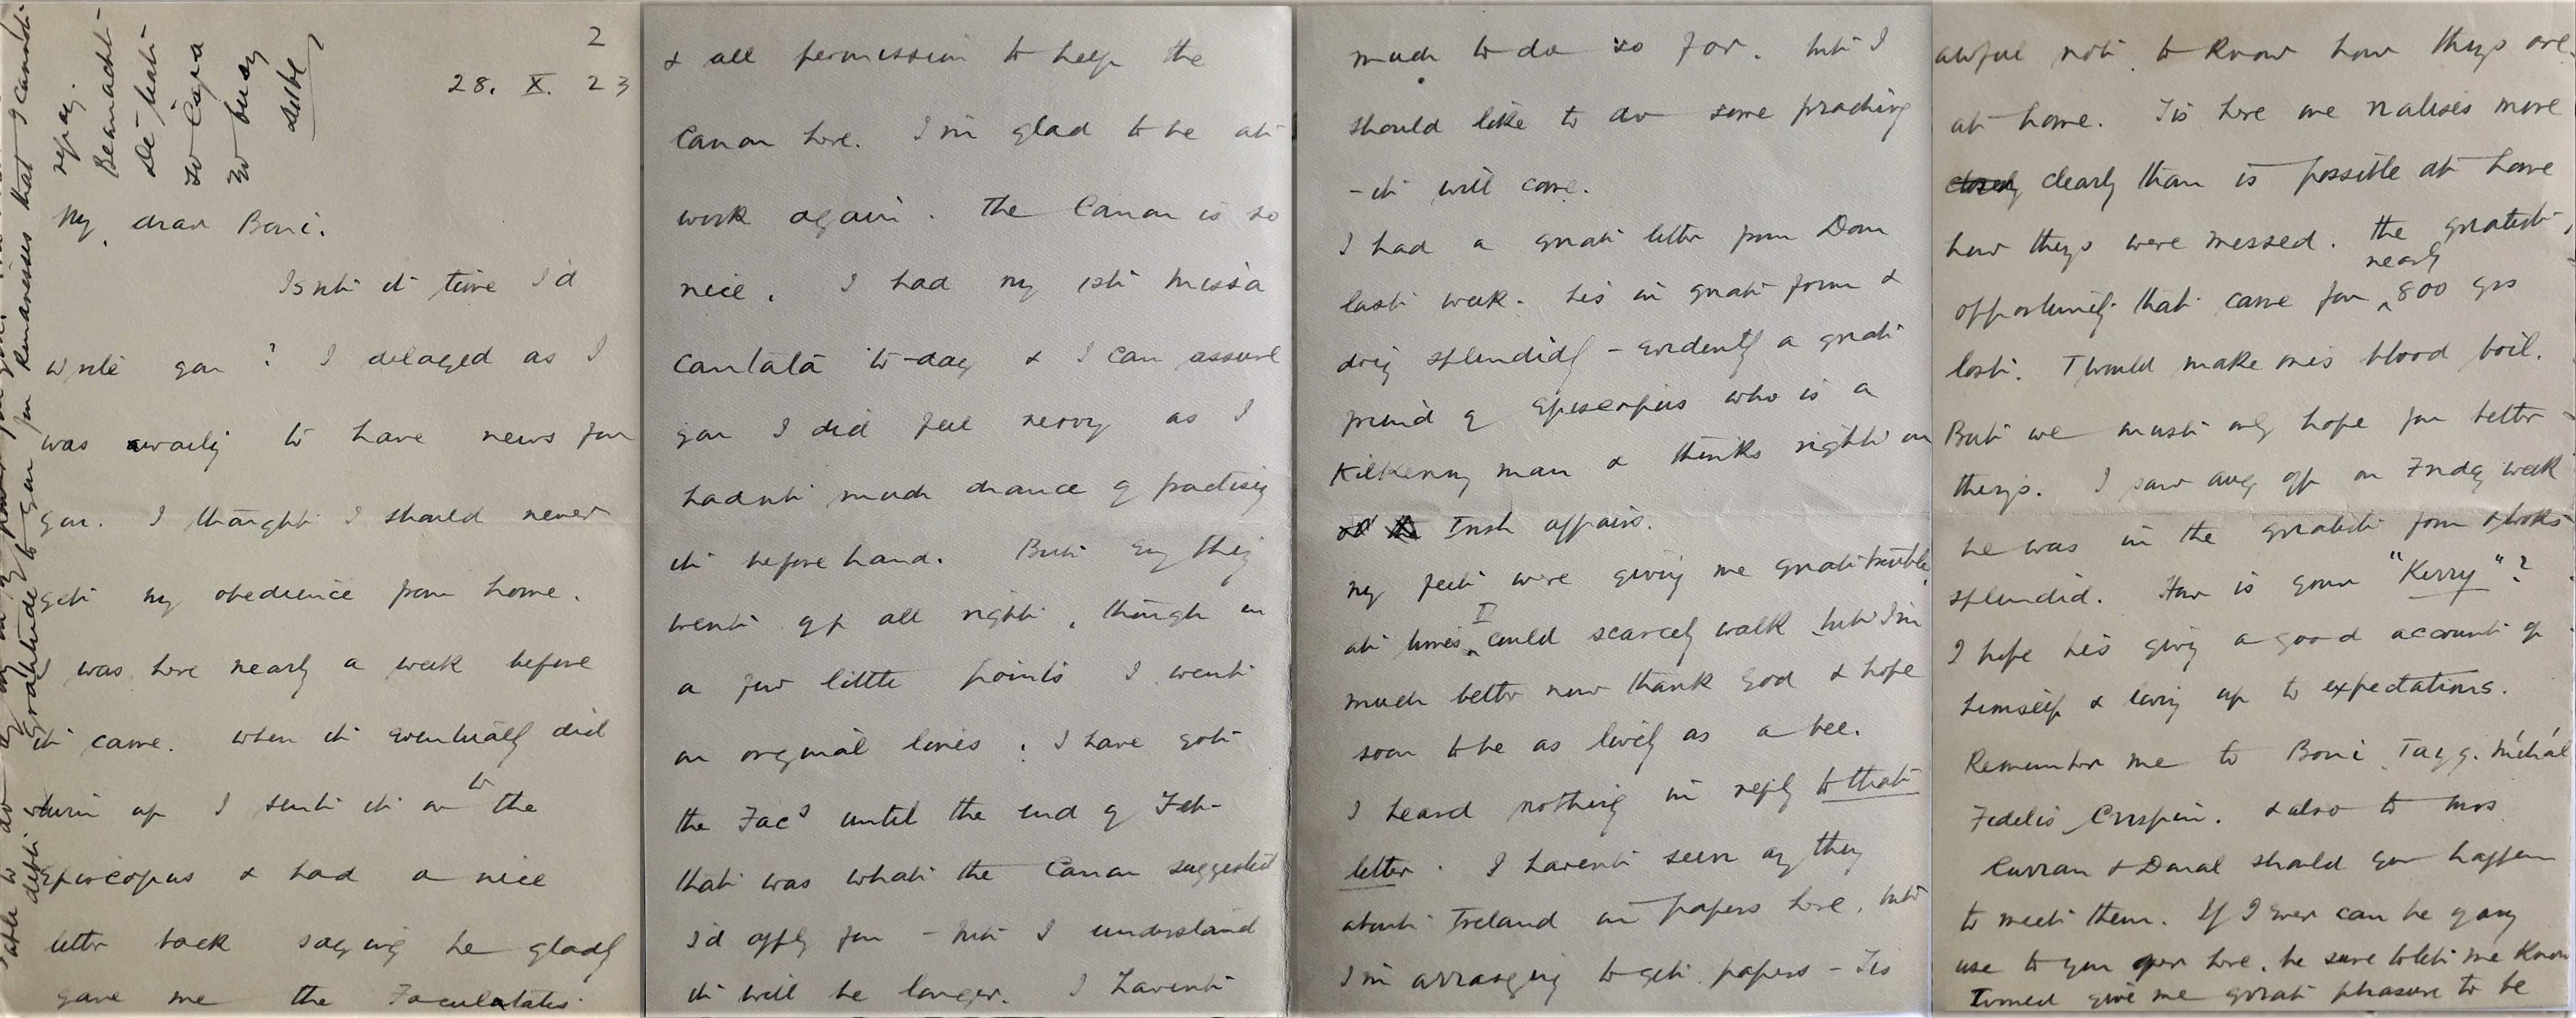 2
28. X. 23
My dear Boni.
Isnt it time I'd
write you? I delayed as I
was awaitg to have news for
you. I thought I should never
get my obedience from home.
I was here nearly a week before
it came. When it eventually did
turn up I sent it on to the
Episcopus & had a nice
letter back saying he gladly
gave me the Facultates
& all permission to help the
Canon here. I'm glad to be at
work again. The Canon is so
nice. I had my 1st missa
cantata to-day & I can assure
you I did feel nervy as I
hadnt much chance of practising
it beforehand. But everything
went off all right, though in
a few little points I went
on original lines. I have got
the Facs until the end of Feb-
that was what the Canon suggested
I'd apply for - but I understand
it will be longer. I havent
much to do so far. but I
should like to do some preaching
- it will come.
I had a great letter from Dom
last week. he's in great form &
doing splendidly - evidently a great
friend of Episcopus who is a
Kilkenny man & thinks right on
Irish affairs.
My feet were giving me great trouble
at times I could scarcely walk but I'm
much better now thank God & hope
soon to be as lively as a bee.
I heard nothing in reply to that
letter. I havent seen anything
about Ireland in papers here, but
I'm arranging to get papers - Tis
awful not to know how things are
at home. Tis here one realises more
clearly than is possible at home
how things were messed. The greatest
opportunity that came for nearly 800 yrs
lost. Twould make one's blood boil.
But we must only hope for better
things. I saw Aug off on Friday week
he was in the greatest form & looks
splendid. How is your "Kerry"?
I hope he's giving a good account of
himself & living up to expectations.
Remember me to Boni Tayg. Mícheál
Fedelis Crispin. & also to Mrs
Curran & Donal should you happen
to meet them. If I ever can be of any
use to you over here, be sure to let me know
Twould give me great pleasure to be
able to do
debt of gratitude to you for kindnesses that I cannot
repay.
Beannacht
Dé leat